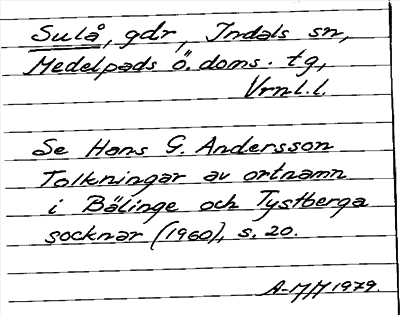 Sulå, gdr, Indals sn,
Medelpads ö. doms. tg,
Vrnl.l.
Se Hans G. Andersson
Tolkningar av ortnamn
i Bälinge och Tystberga
socknar (1960), s. 20.
A-MH 1979.